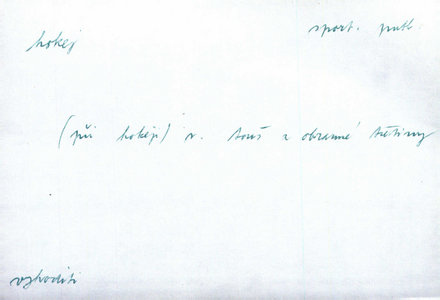 hokej
sport. publ.
(při hokeji) v. touš z obranné třetiny
vyhoditi